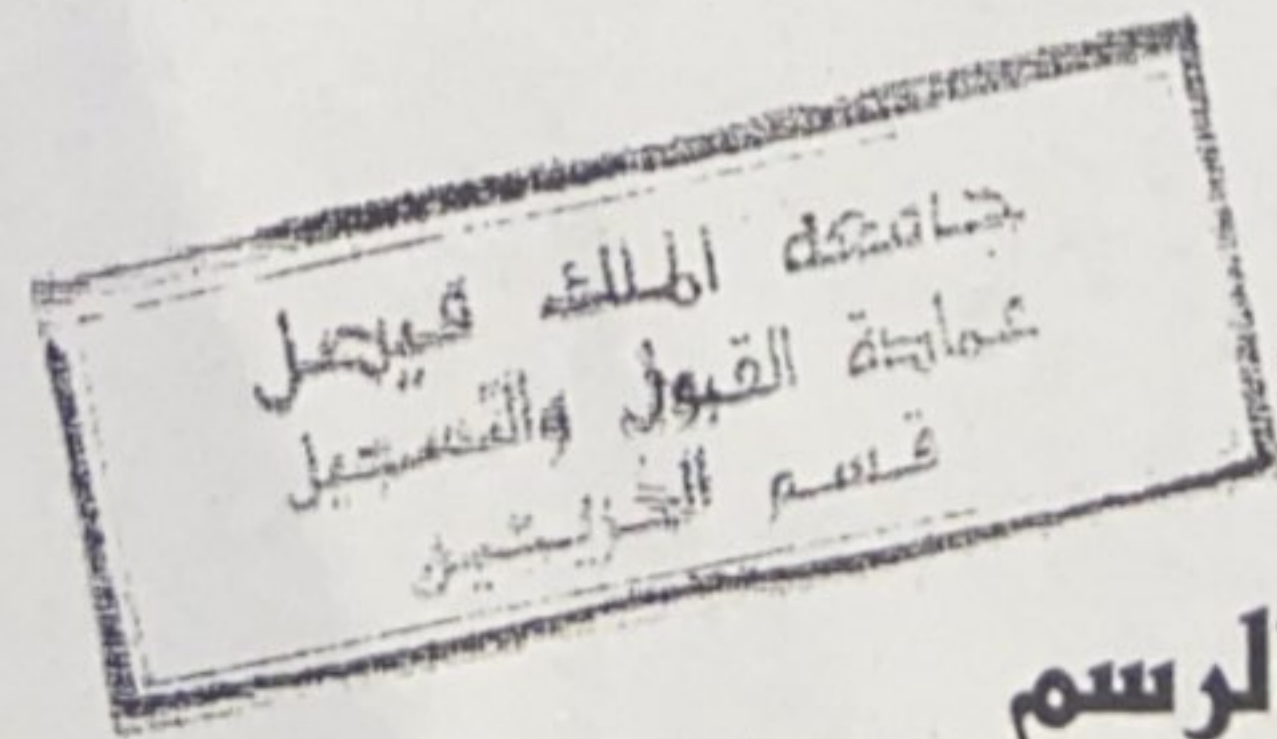 جامعة الملك فيصل
عمادة القبول والتسجيل
قسم الخريجين
لرسم